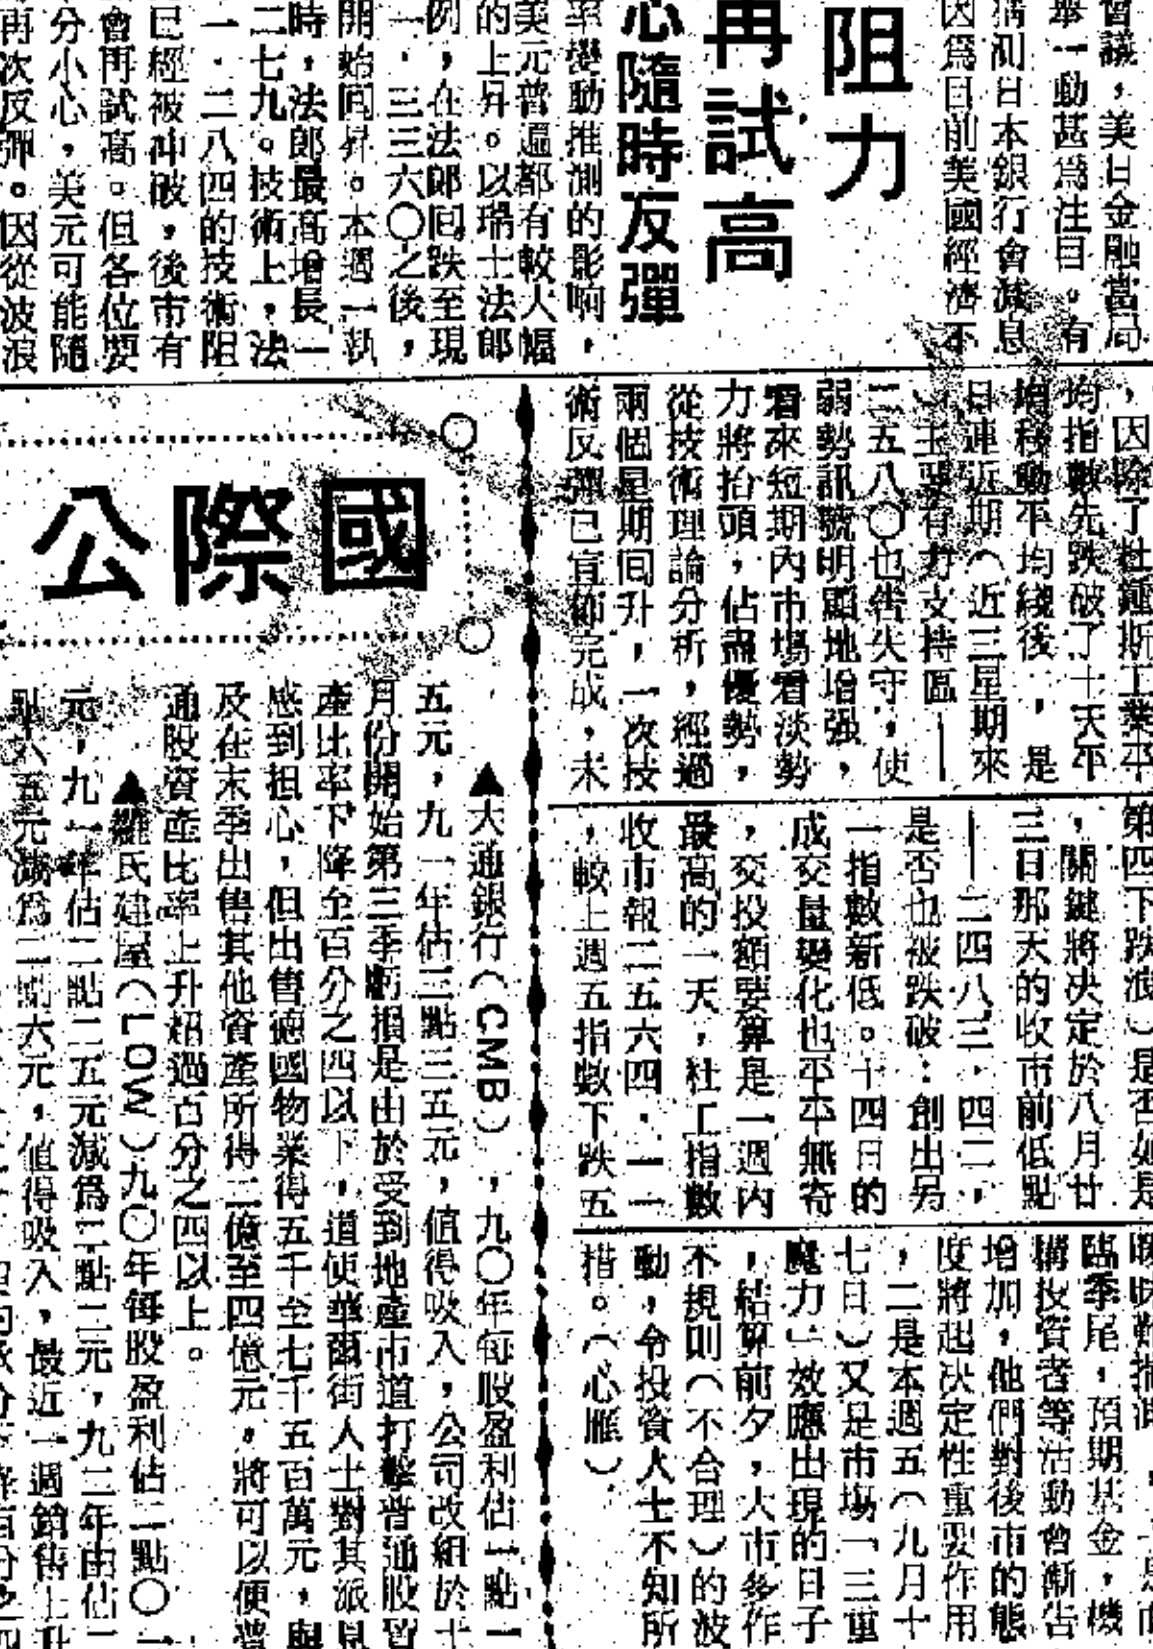 會議，美日金融當局
舉一動甚爲注目。有
猜測日本銀行會減息
因爲目前美國經濟不
阻力
再試高
心隨時反彈
率變動推測的影响，
美元普遍都有較大幅
的上昇。以瑞士法郎
例，在法郎回跌至現
一．三三六〇之後，
開始回昇。本週一執
時，法郎最高增長一
二七九。技術上，法
一．二八四的技術阻
已經被冲破，後市有
會再試高。但各位要
分小心，美元可能隨
再次反彈。因從波浪
，因除了杜鍾斯工業平
均指數先跌破了十天平
均移動平均綫後，是
日連近期（近三星期來
）主要有力支持區——
二五八〇也告失守，使
弱勢訊號明顯地增强，
看來短期內市場看淡勢
力將抬頭，佔盡優勢，
從技術理論分析，經過
兩個星期回升，一次技
術反彈已宣佈完成，未
第四下跌浪）是否如是
，關鍵將决定於八月廿
三日那天的收市前低點
——二四八三．四二，
是否也被跌破：創出另
一指數新低。十四日的
成交量變化也平平無奇
，交投額要算是一週內
最高的一天，杜工指數
收市報二五六四．一一
，較上週五指數下跌五
臨季尾，預期基金，機
構投資者等活動會漸告
增加，他們對後市的態
度將起决定性重要作用
，二是本週五（九月十
七日）又是市場「三重
魔力」效應出現的日子
，結算前夕，大市多作
不規則（不合理）的波
動，令投資人士不知所
措。（心雁）
國際公
▲大通銀行（CMB），九〇年每股盈利估一點一
五元，九一年估三點三五元，值得吸入，公司改組於十
月份開始第三季虧損是由於受到地產市道打擊普通股資
產比率下降至百分之四以下，道使華爾街人士對其派息
感到担心，但出售德國物業得五千至七千五百萬元，與
及在末季出售其他資產所得二億至四億元，將可以便普
通股資產比率上升超過百分之四以上。
▲羅氏建屋（LOW）九〇年每股盈利估二點〇一
元，九一年估二點二五元減爲二點二元，九二年由估二
點六五元減爲二點六元，值得吸入，最近一週銷售上升